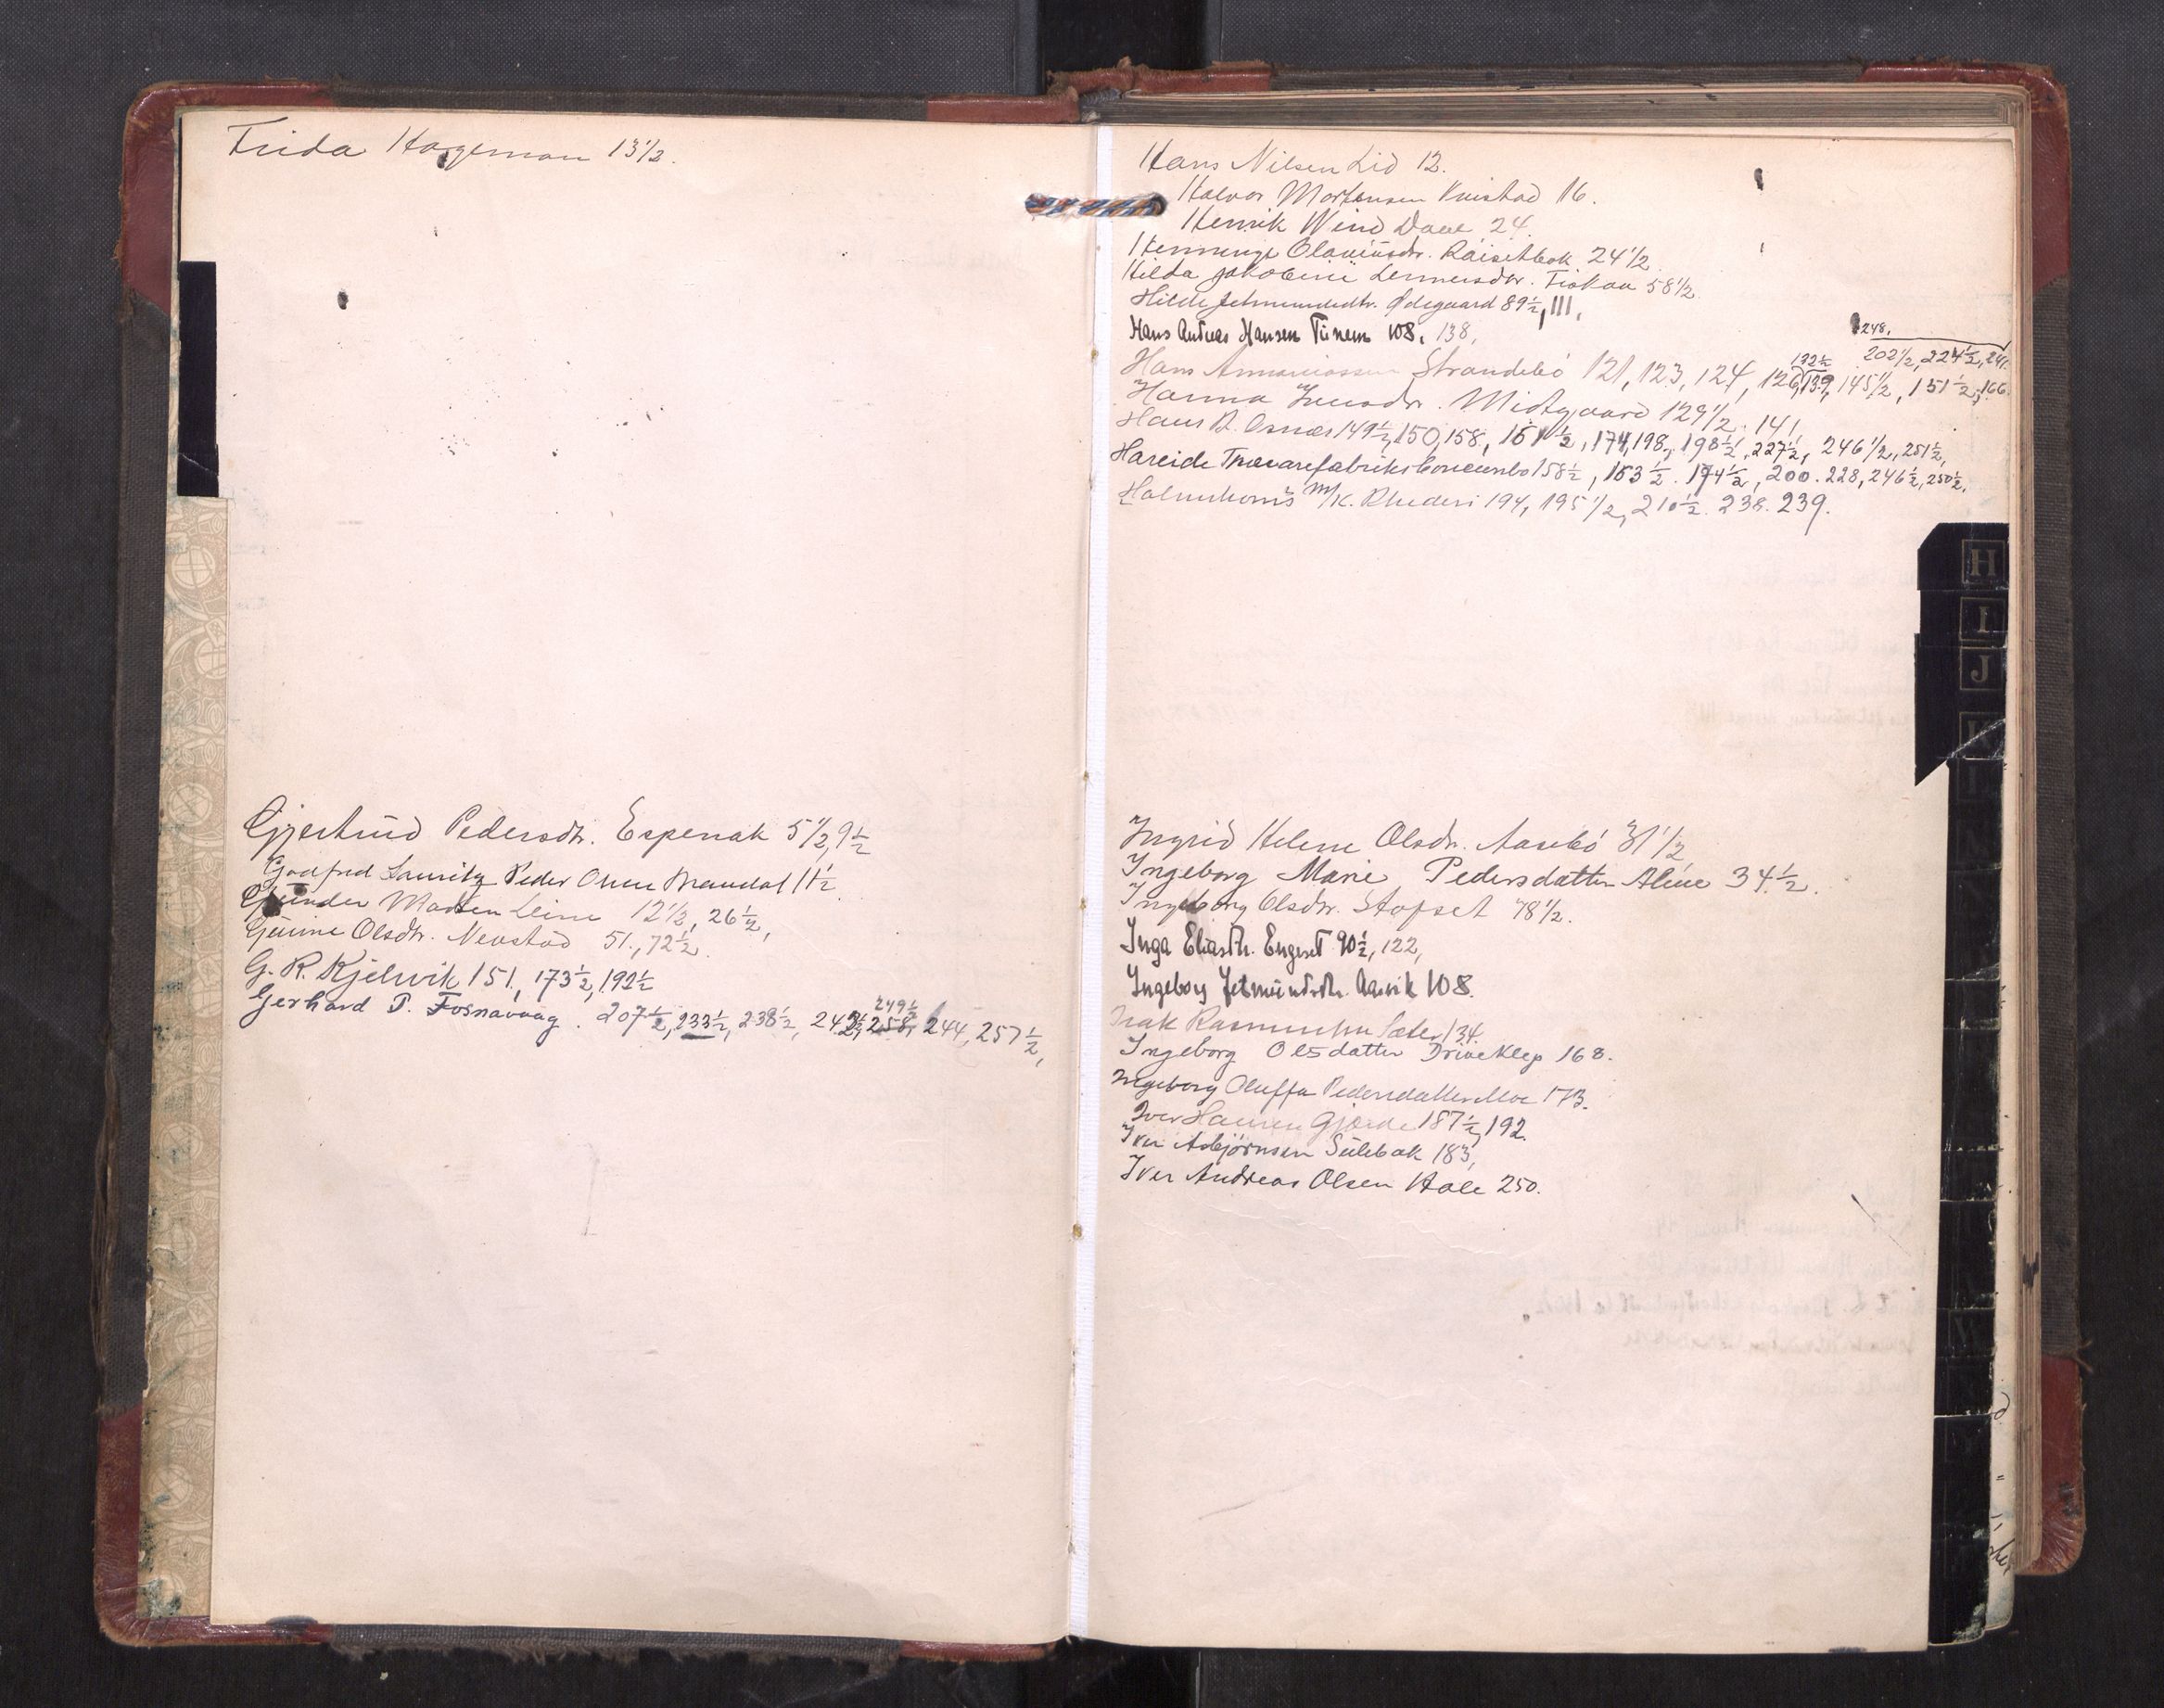 Frida Hageman 13 1/2.
Gjertrud Pedersdtr. Espenak 5 1/2, 9 1/2
Godfred Lauritz Peder Olsen Brandal 11 1/2.
Madsen Leine 12 1/2, 26 1/2,
Olsdtr. Nevstad 51., 72 1/2.
G. R. Kjelsvik 151, 173 1/2, 192 1/2
249 1/2
Gerhard P. Fosnavaag. 207 1/2, 233 1/2, 238 1/2, 242 1/2, 258, 244, 257 1/2,
Hans Nilsen Lid 12.
Halvor Mortensen 16.
Henrik Wind Daae 24.
Olaviusdtr. Raisetbak 24 1/2
Hilda Jakobine 58 1/2
Hilda Jetmundsdtr. Ødegaard 89 1/2, 111,
Hans Andreas Hansen 108. 138,
248.
132 1/2 202 1/2, 224 1/2, 241.
Hans Strandebø 121, 123, 124, 126, 139, 145 1/2, 151 1/2, 166.
Hanna Jensdtr. Midtgaard 129 1/2. 141
Hans A. Osnes 149 1/2, 150, 158, 161 1/2, 174, 198, 198 1/2, 227 1/2, 246 1/2, 251 1/2,
Hareide Trævarefabriks 158 1/2, 163 1/2. 174 1/2, 200. 228, 246 1/2, 250 1/2.
M/K. Rhederi 194, 195 1/2, 210 1/2. 238. 239.
H
I
J
K
Ingrid Helene Olsdr. Aasebø 31 1/2
Ingeborg Marie Pedersdatter Alme 34 1/2.
Ingeborg Olsdtr. Stofset 78 1/2.
Inga Eliasdtr. Engeset 90 1/2, 122,
Ingeborg Jetmundsdtr. Aasvik 108.
Isak Rasmussen Sæter 134.
Ingeborg Olsdatter Driveklep 168.
Ingeborg Oluffa Pedersdatter Moe 173.
Iver Hansen Gjerde 187 1/2, 192.
Iver Asbjørnsen Sulebak 183,
Iver Andreas Olsen Hole 250.